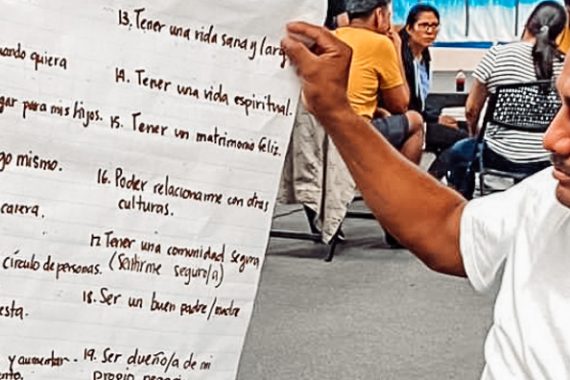 uando quiera
gar para mis hijos.
go mismo.
carera.
círculo de personas.
esta.
y aumentar.
13. Tener una vida sana y larg
14. Tener una vida espiritual.
15. Tener un matrimonio feliz.
16. Poder relacionarme con otras
culturas.
17. Tener una comunidad segura
(Sentirme seguro/a)
18. Ser un buen padre/madre
19. Ser dueño/a de mi
propio